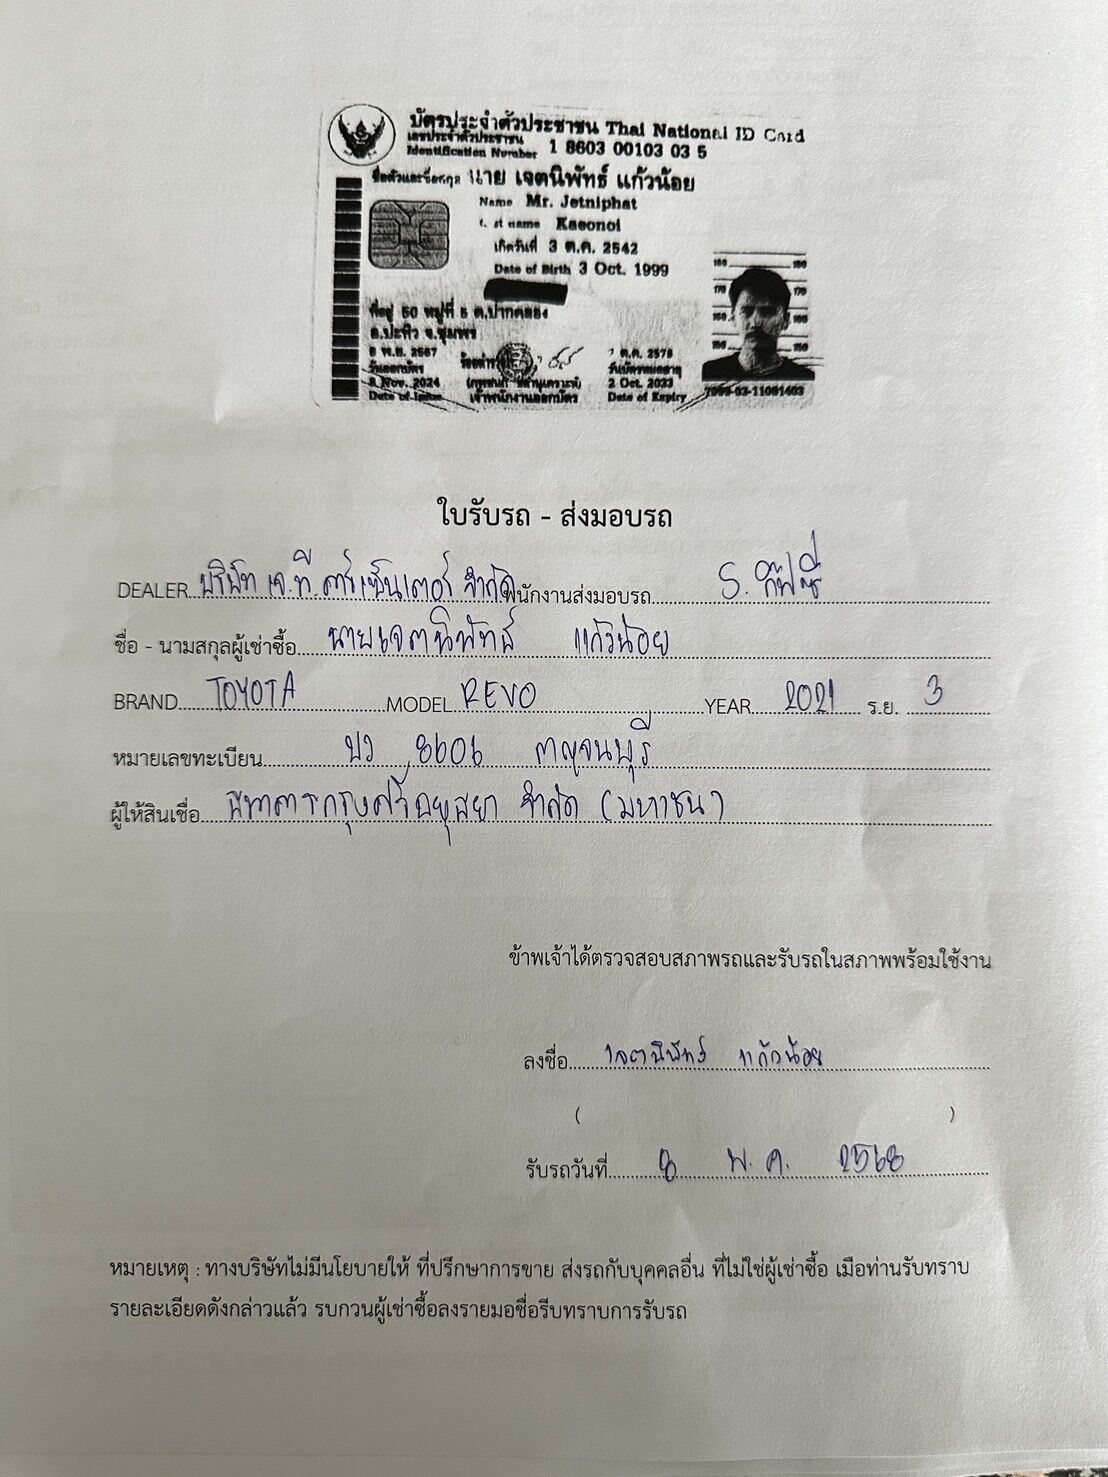 บัตรประจำตัวประชาชน Thai National ID Card
เลขประจำตัวประชาชน
Identification Number 1 8603 00103 03 5
ชื่อตัวและชื่อสกุล นาย เจตนิพัทธ์ แก้วน้อย
Name Mr. Jetniphat
Last name Kaeonoi
เกิดวันที่ 3 ต.ค. 2542
Date of Birth 3 Oct. 1999
ที่อยู่ 50 หมู่ที่ 5 ต.ปากคลอง
อ.ปะทิว จ.ชุมพร
8 พ.ย. 2567
วันออกบัตร
8 Nov. 2024
Date of Issue
เจ้าพนักงานออกบัตร
ต.ค. 2576
วันบัตรหมดอายุ
2 Oct. 2033
Date of Expiry
ใบรับรถ - ส่งมอบรถ
DEALER บริษัท เจ.ที.คาร์เซ็นเตอร์ จำกัด พนักงานส่งมอบรถ S. กิ๊ฟซี่
ชื่อ - นามสกุลผู้เช่าซื้อ นายเจตนิพัทธ์ แก้วน้อย
BRAND TOYOTA MODEL REVO YEAR 2021 ร.ย. 3
หมายเลขทะเบียน 8606 กาญจนบุรี
ผู้ให้สินเชื่อ ธนาคารกรุงศรีอยุธยา จำกัด (มหาชน)
ข้าพเจ้าได้ตรวจสอบสภาพรถและรับรถในสภาพพร้อมใช้งาน
ลงชื่อ เจตนิพัทธ์ แก้วน้อย
( )
รับรถวันที่ 8 พ.ค. 2568
หมายเหตุ : ทางบริษัทไม่มีนโยบายให้ ที่ปรึกษาการขาย ส่งรถกับบุคคลอื่น ที่ไม่ใช่ผู้เช่าซื้อ เมื่อท่านรับทราบ
รายละเอียดดังกล่าวแล้ว รบกวนผู้เช่าซื้อลงรายมอชื่อรีบทราบการรับรถ